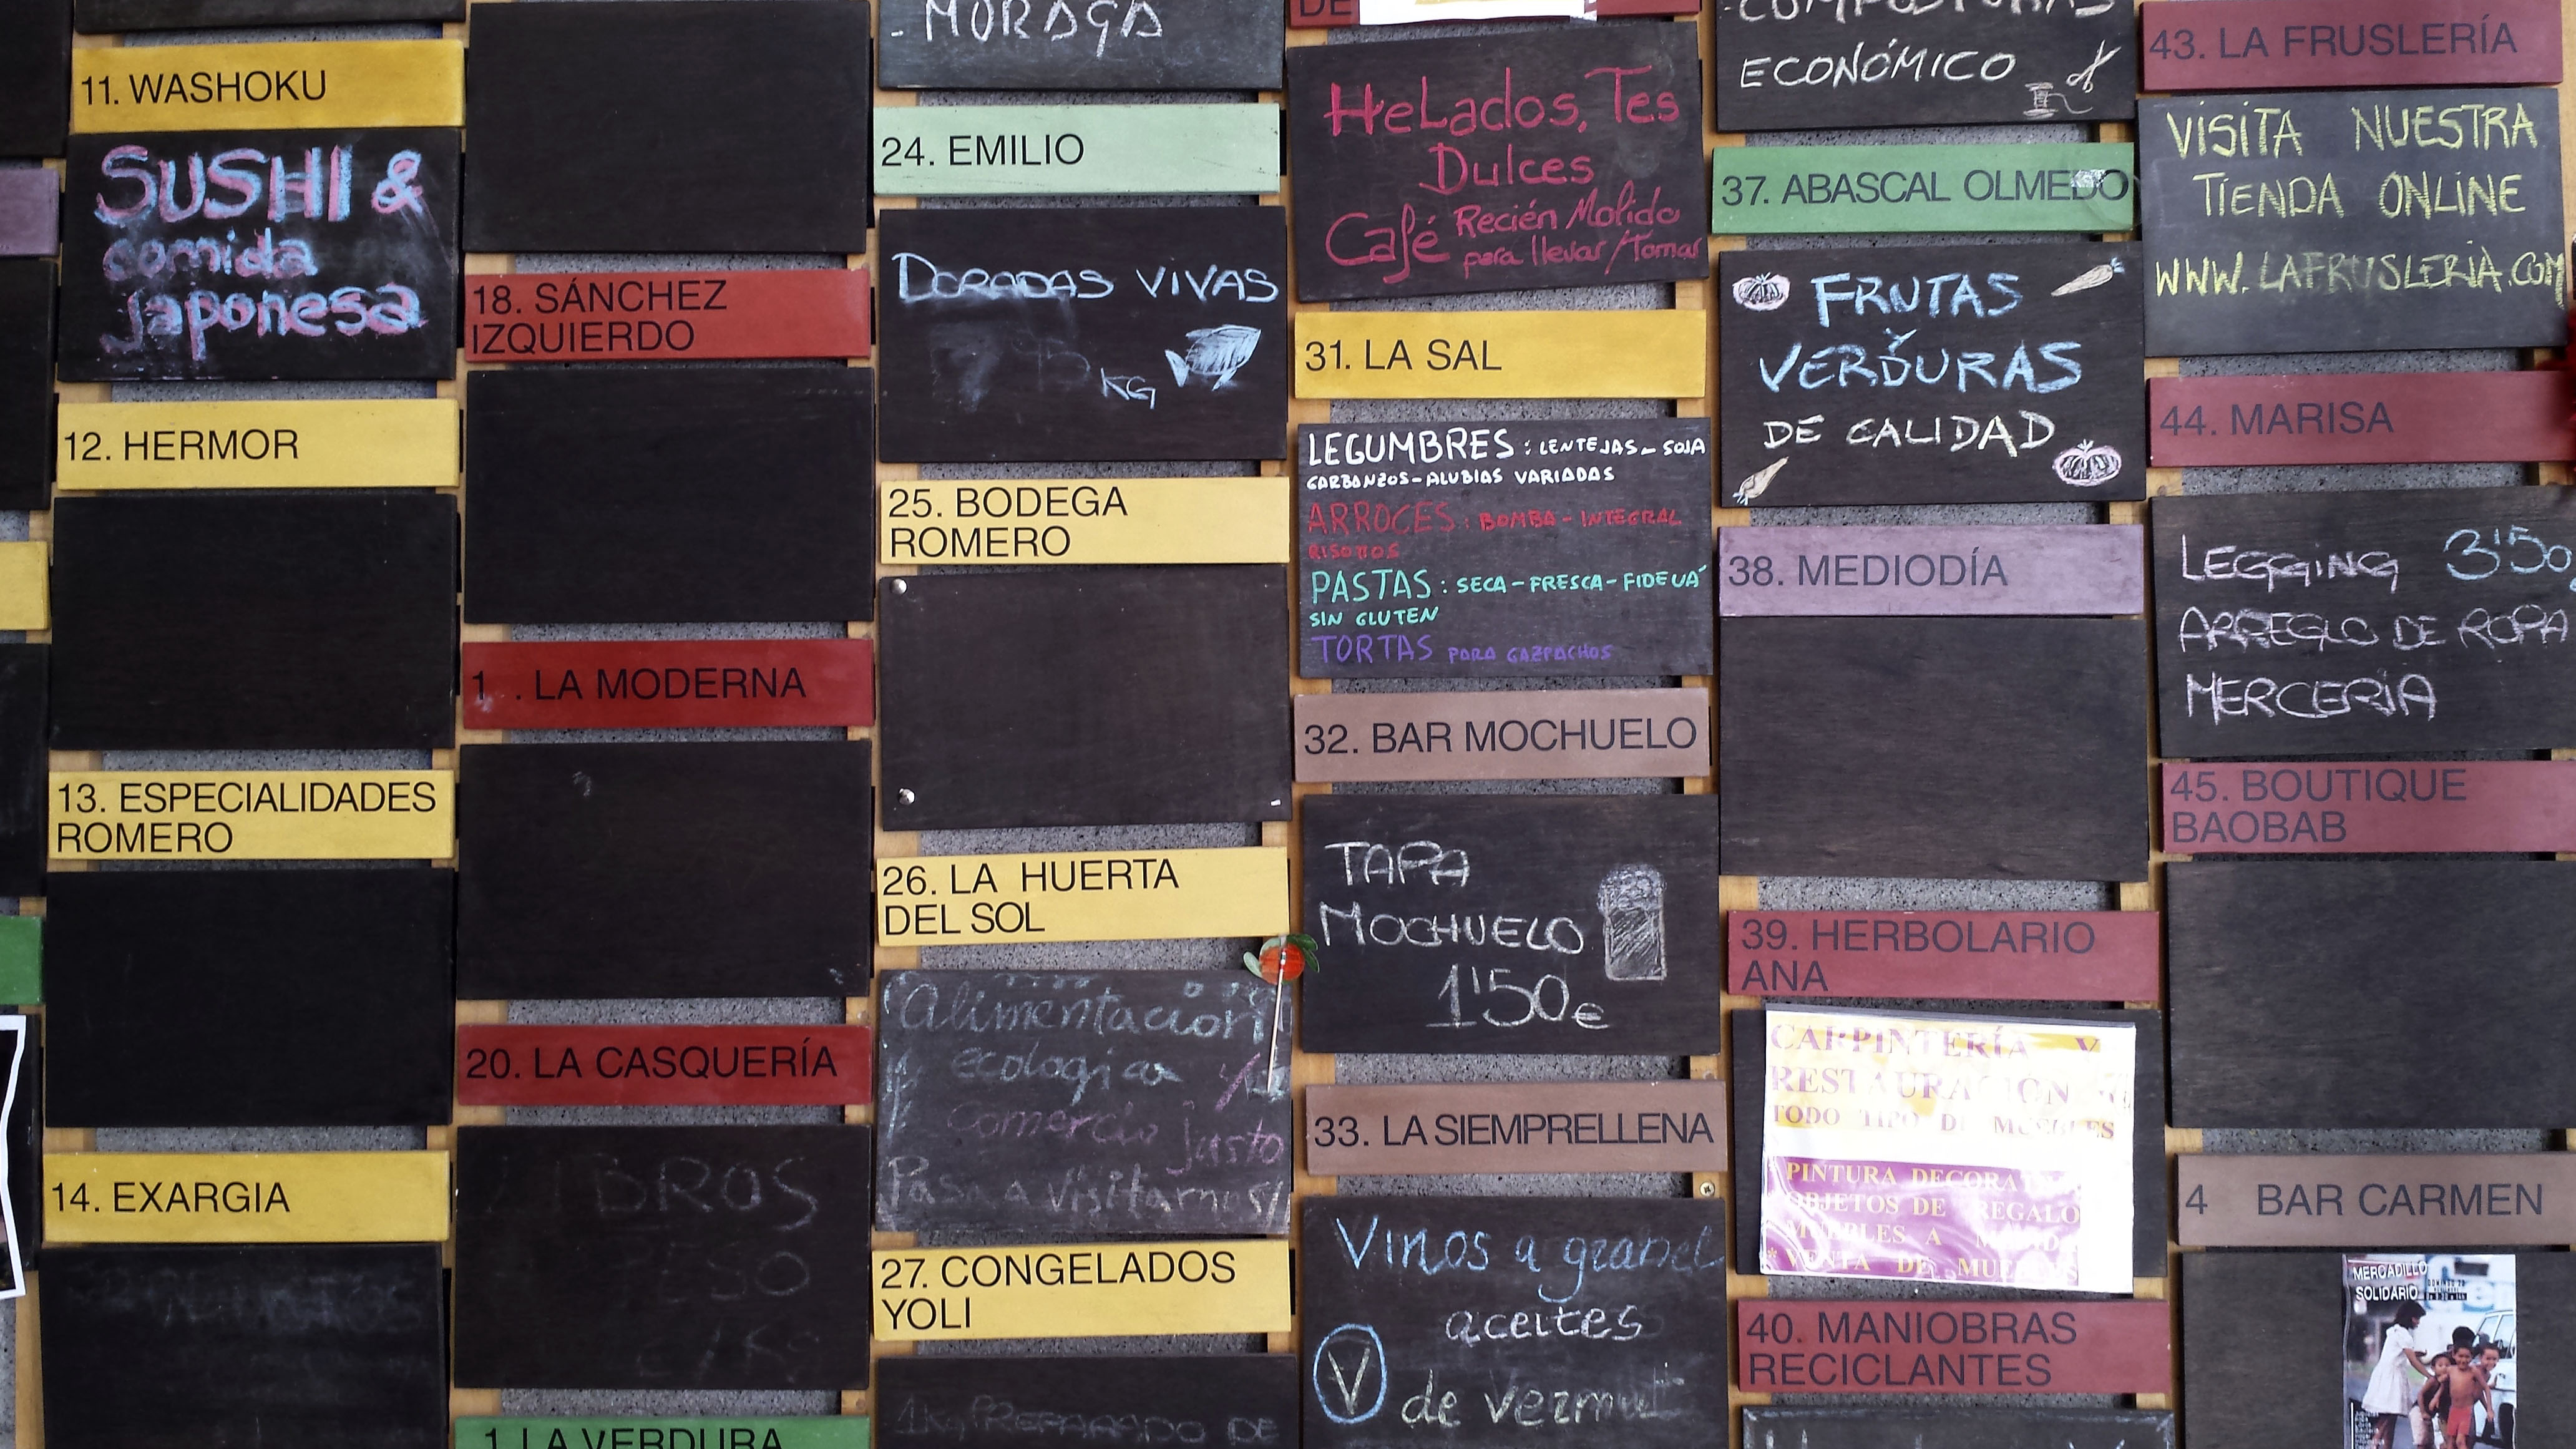 11. WASHOKU
SUSHI &
comida
japonesa
12. HERMOR
13. ESPECIALIDADES
ROMERO
14. EXARGIA
18. SÁNCHEZ
IZQUIERDO
1 . LA MODERNA
20. LA CASQUERÍA
LIBROS
PESO
1 LA VERDURA
- MORAGA
24. EMILIO
DORADAS VIVAS
KG
25. BODEGA
ROMERO
26. LA HUERTA
DEL SOL
Alimentación
ecológica y
comercio justo
Pasa a visitarnos!
27. CONGELADOS
YOLI
1Kg PREPARADO DE
DE
HeLados, Tes
Dulces
Café Recién Molido
para llevar/Tomar
31. LA SAL
LEGUMBRES : LENTEJAS - SOJA
GARBANZOS - ALUBIAS VARIADAS
ARROCES : BOMBA - INTEGRAL
RISOTTOS
PASTAS : SECA - FRESCA - FIDEUÁ
SIN GLUTEN
TORTAS PARA GAZPACHOS
32. BAR MOCHUELO
TAPA
MOCHUELO
1'50€
33. LA SIEMPRELLENA
Vinos a granel
aceites
V de vermut
COMPOSTURAS
ECONÓMICO
37. ABASCAL OLMEDO
FRUTAS
Y
VERDURAS
DE CALIDAD
38. MEDIODÍA
39. HERBOLARIO
ANA
CARPINTERÍA Y
RESTAURACION
TODO TIPO DE MUEBLES
* PINTURA DECORATIVA
OBJETOS DE REGALO
MUEBLES A MEDIDA
* VENTA DE MUEBLES
40. MANIOBRAS
RECICLANTES
43. LA FRUSLERÍA
VISITA NUESTRA
TIENDA ONLINE
WWW.LAFRUSLERIA.COM
44. MARISA
LEGGING 3'50
ARREGLO DE ROPA
MERCERIA
45. BOUTIQUE
BAOBAB
4 BAR CARMEN
MERCADILLO
SOLIDARIO